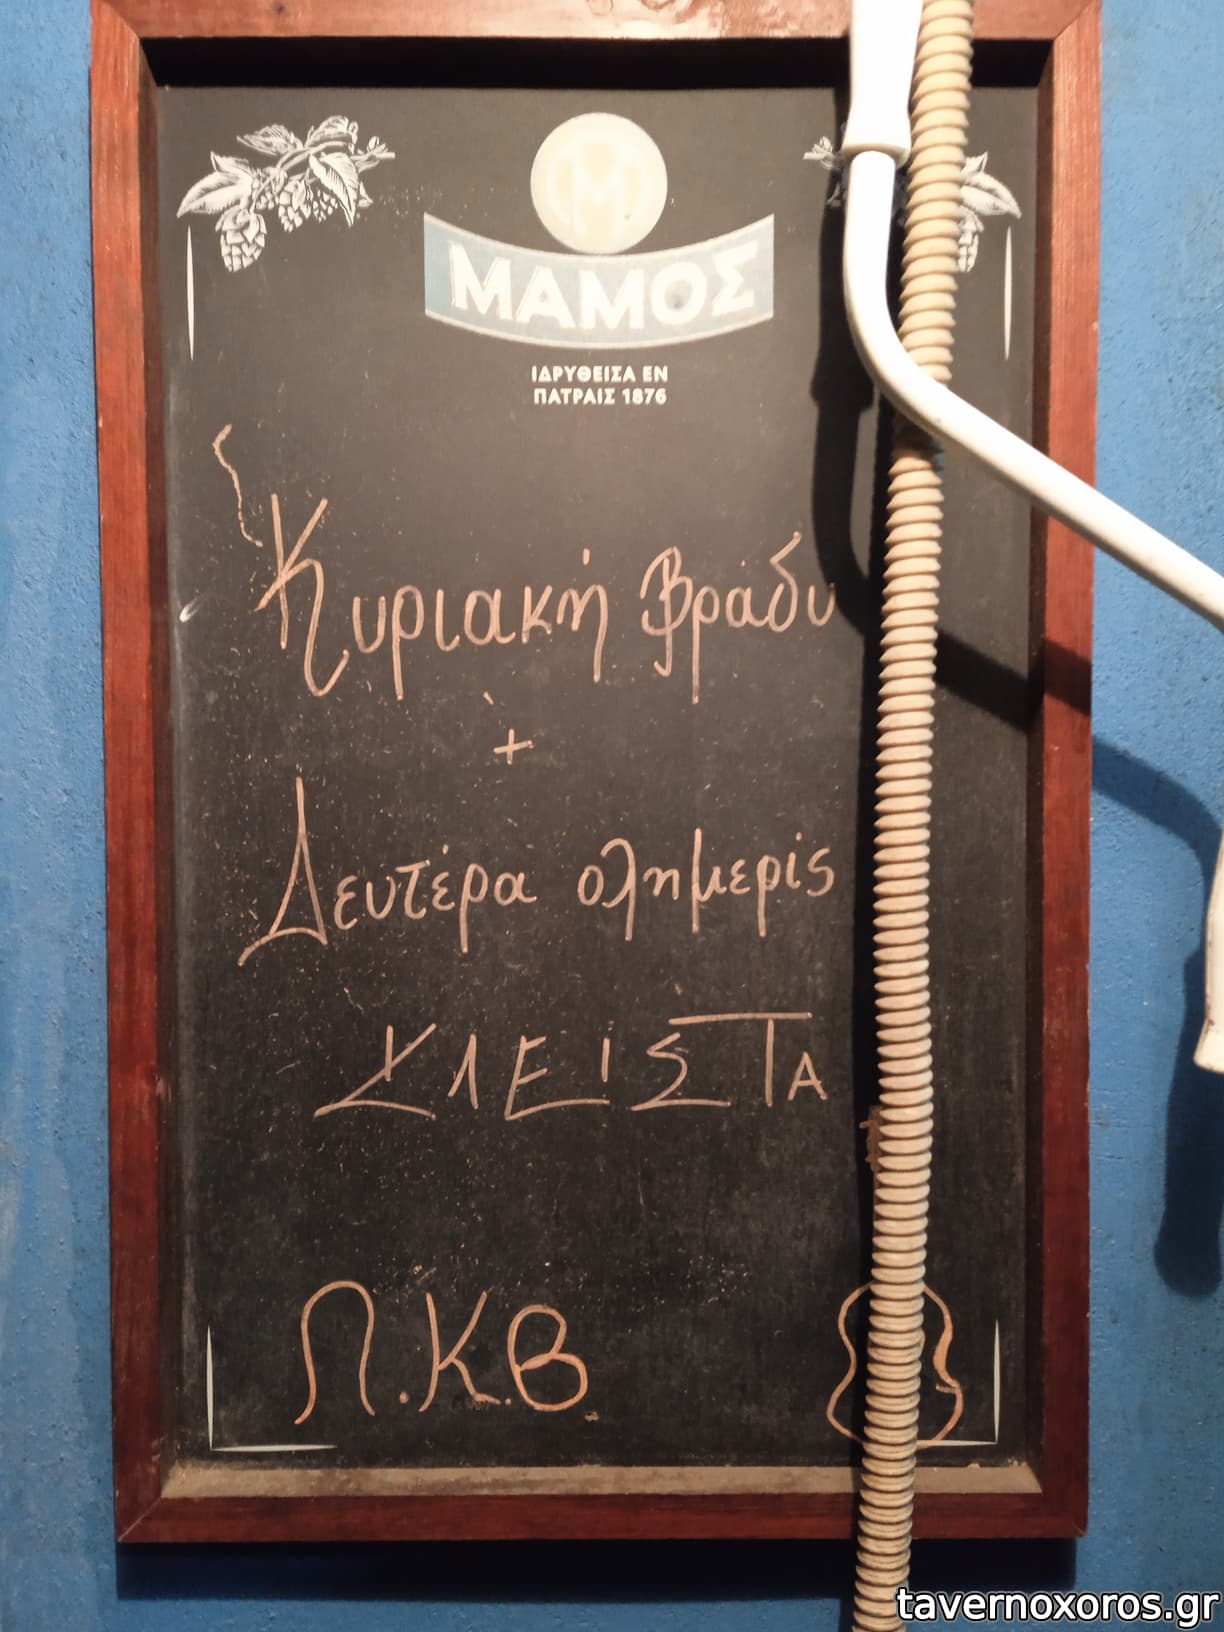 ΜΑΜΟΣ
ΙΔΡΥΘΕΙΣΑ ΕΝ
ΠΑΤΡΑΙΣ 1876
Κυριακή βράδυ
+
Δευτέρα ολημερίς
ΚΛΕΙΣΤΑ
Π.Κ.Β.
tavernoxoros.gr